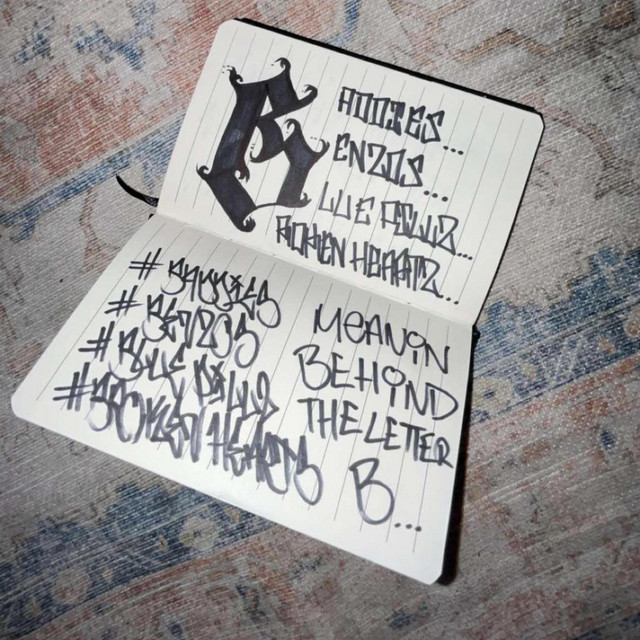 B
ADDIES...
ENZOS...
LUE PILLZ...
ROKEN HEARTZ...
# BADDIES
# BENZOS
# BLUE PILLZ
#BROKEN HEARTS
MEANIN
BEHIND
THE LETTER
B...